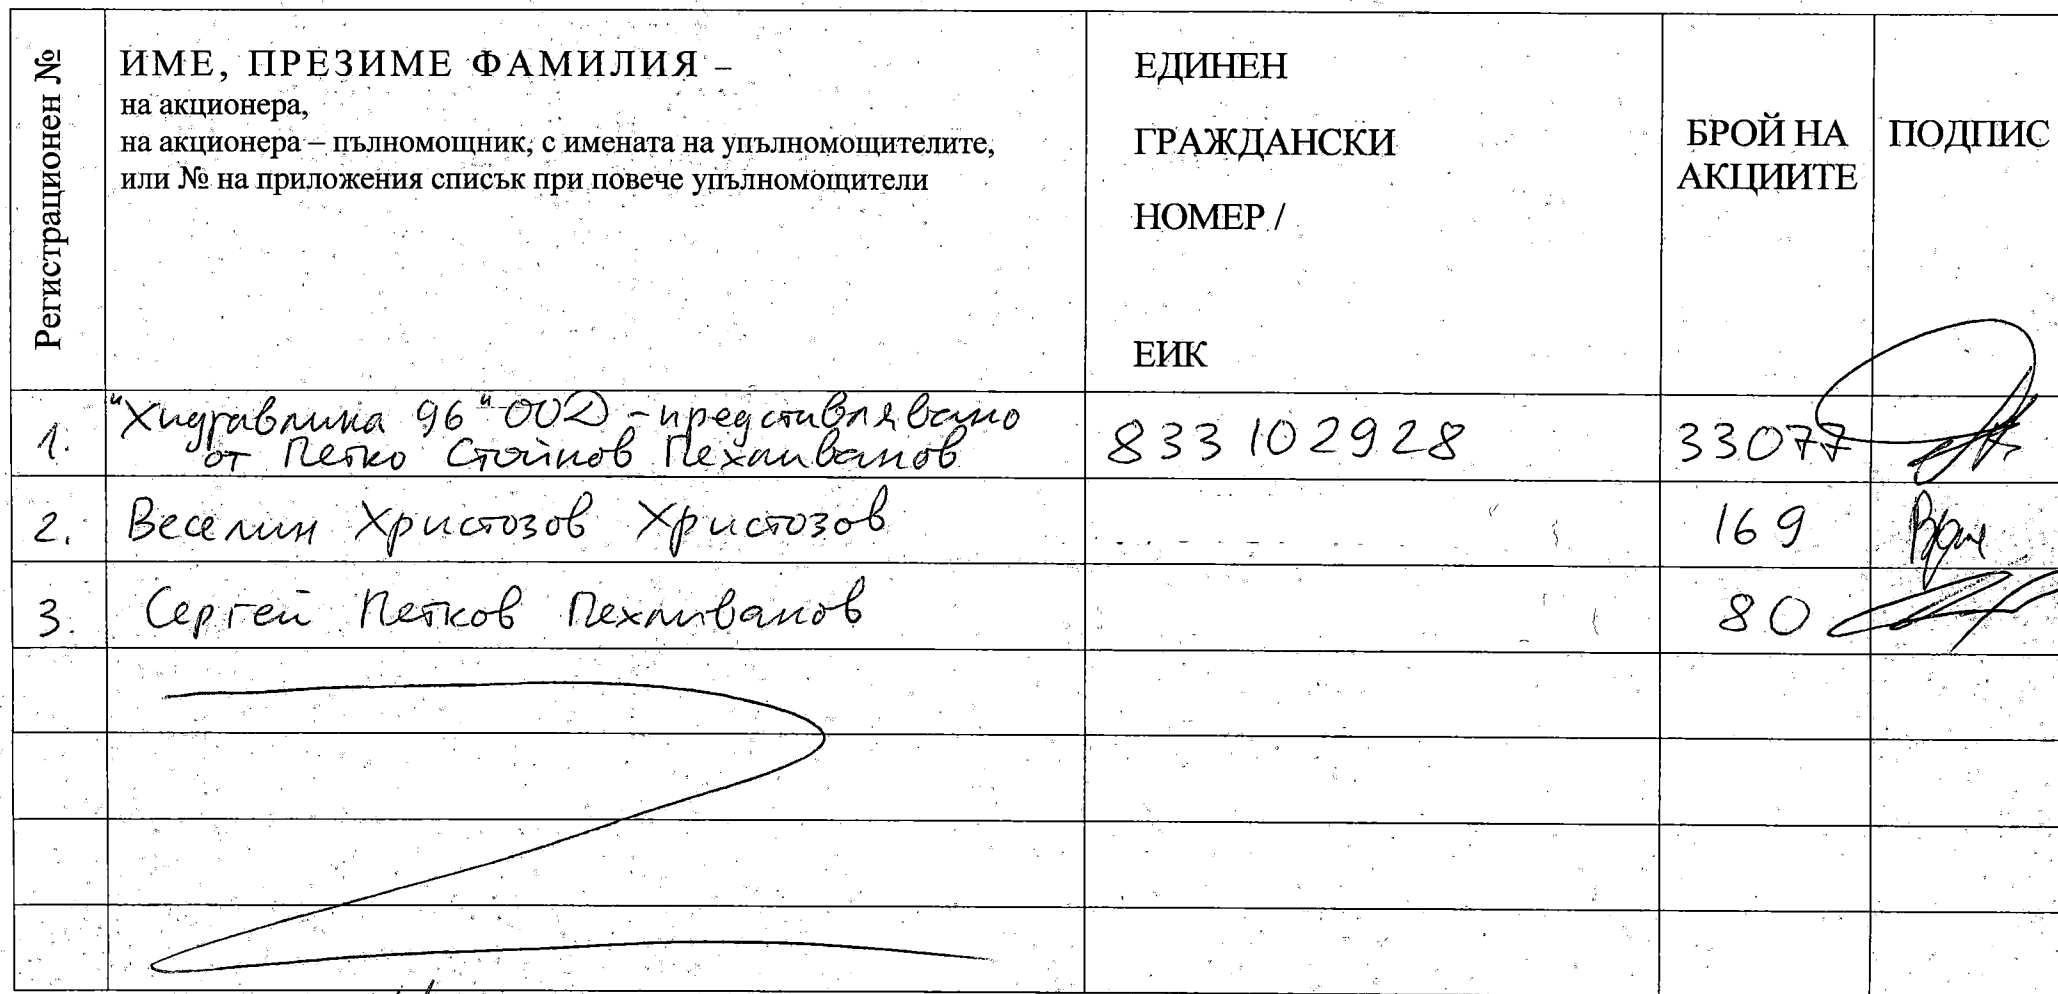 Регистрационен №
ИМЕ, ПРЕЗИМЕ ФАМИЛИЯ –
на акционера,
на акционера – пълномощник, с имената на упълномощителите,
или № на приложения списък при повече упълномощители
ЕДИНЕН
ГРАЖДАНСКИ
НОМЕР /
ЕИК
БРОЙ НА
АКЦИИТЕ
ПОДПИС
1.
"Хидравлика 96" ООД - представлявано
от Петко Стойнов Пехливанов
833102928
33077
2.
Веселин Христозов Христозов
169
3.
Сергей Петков Пехливанов
80